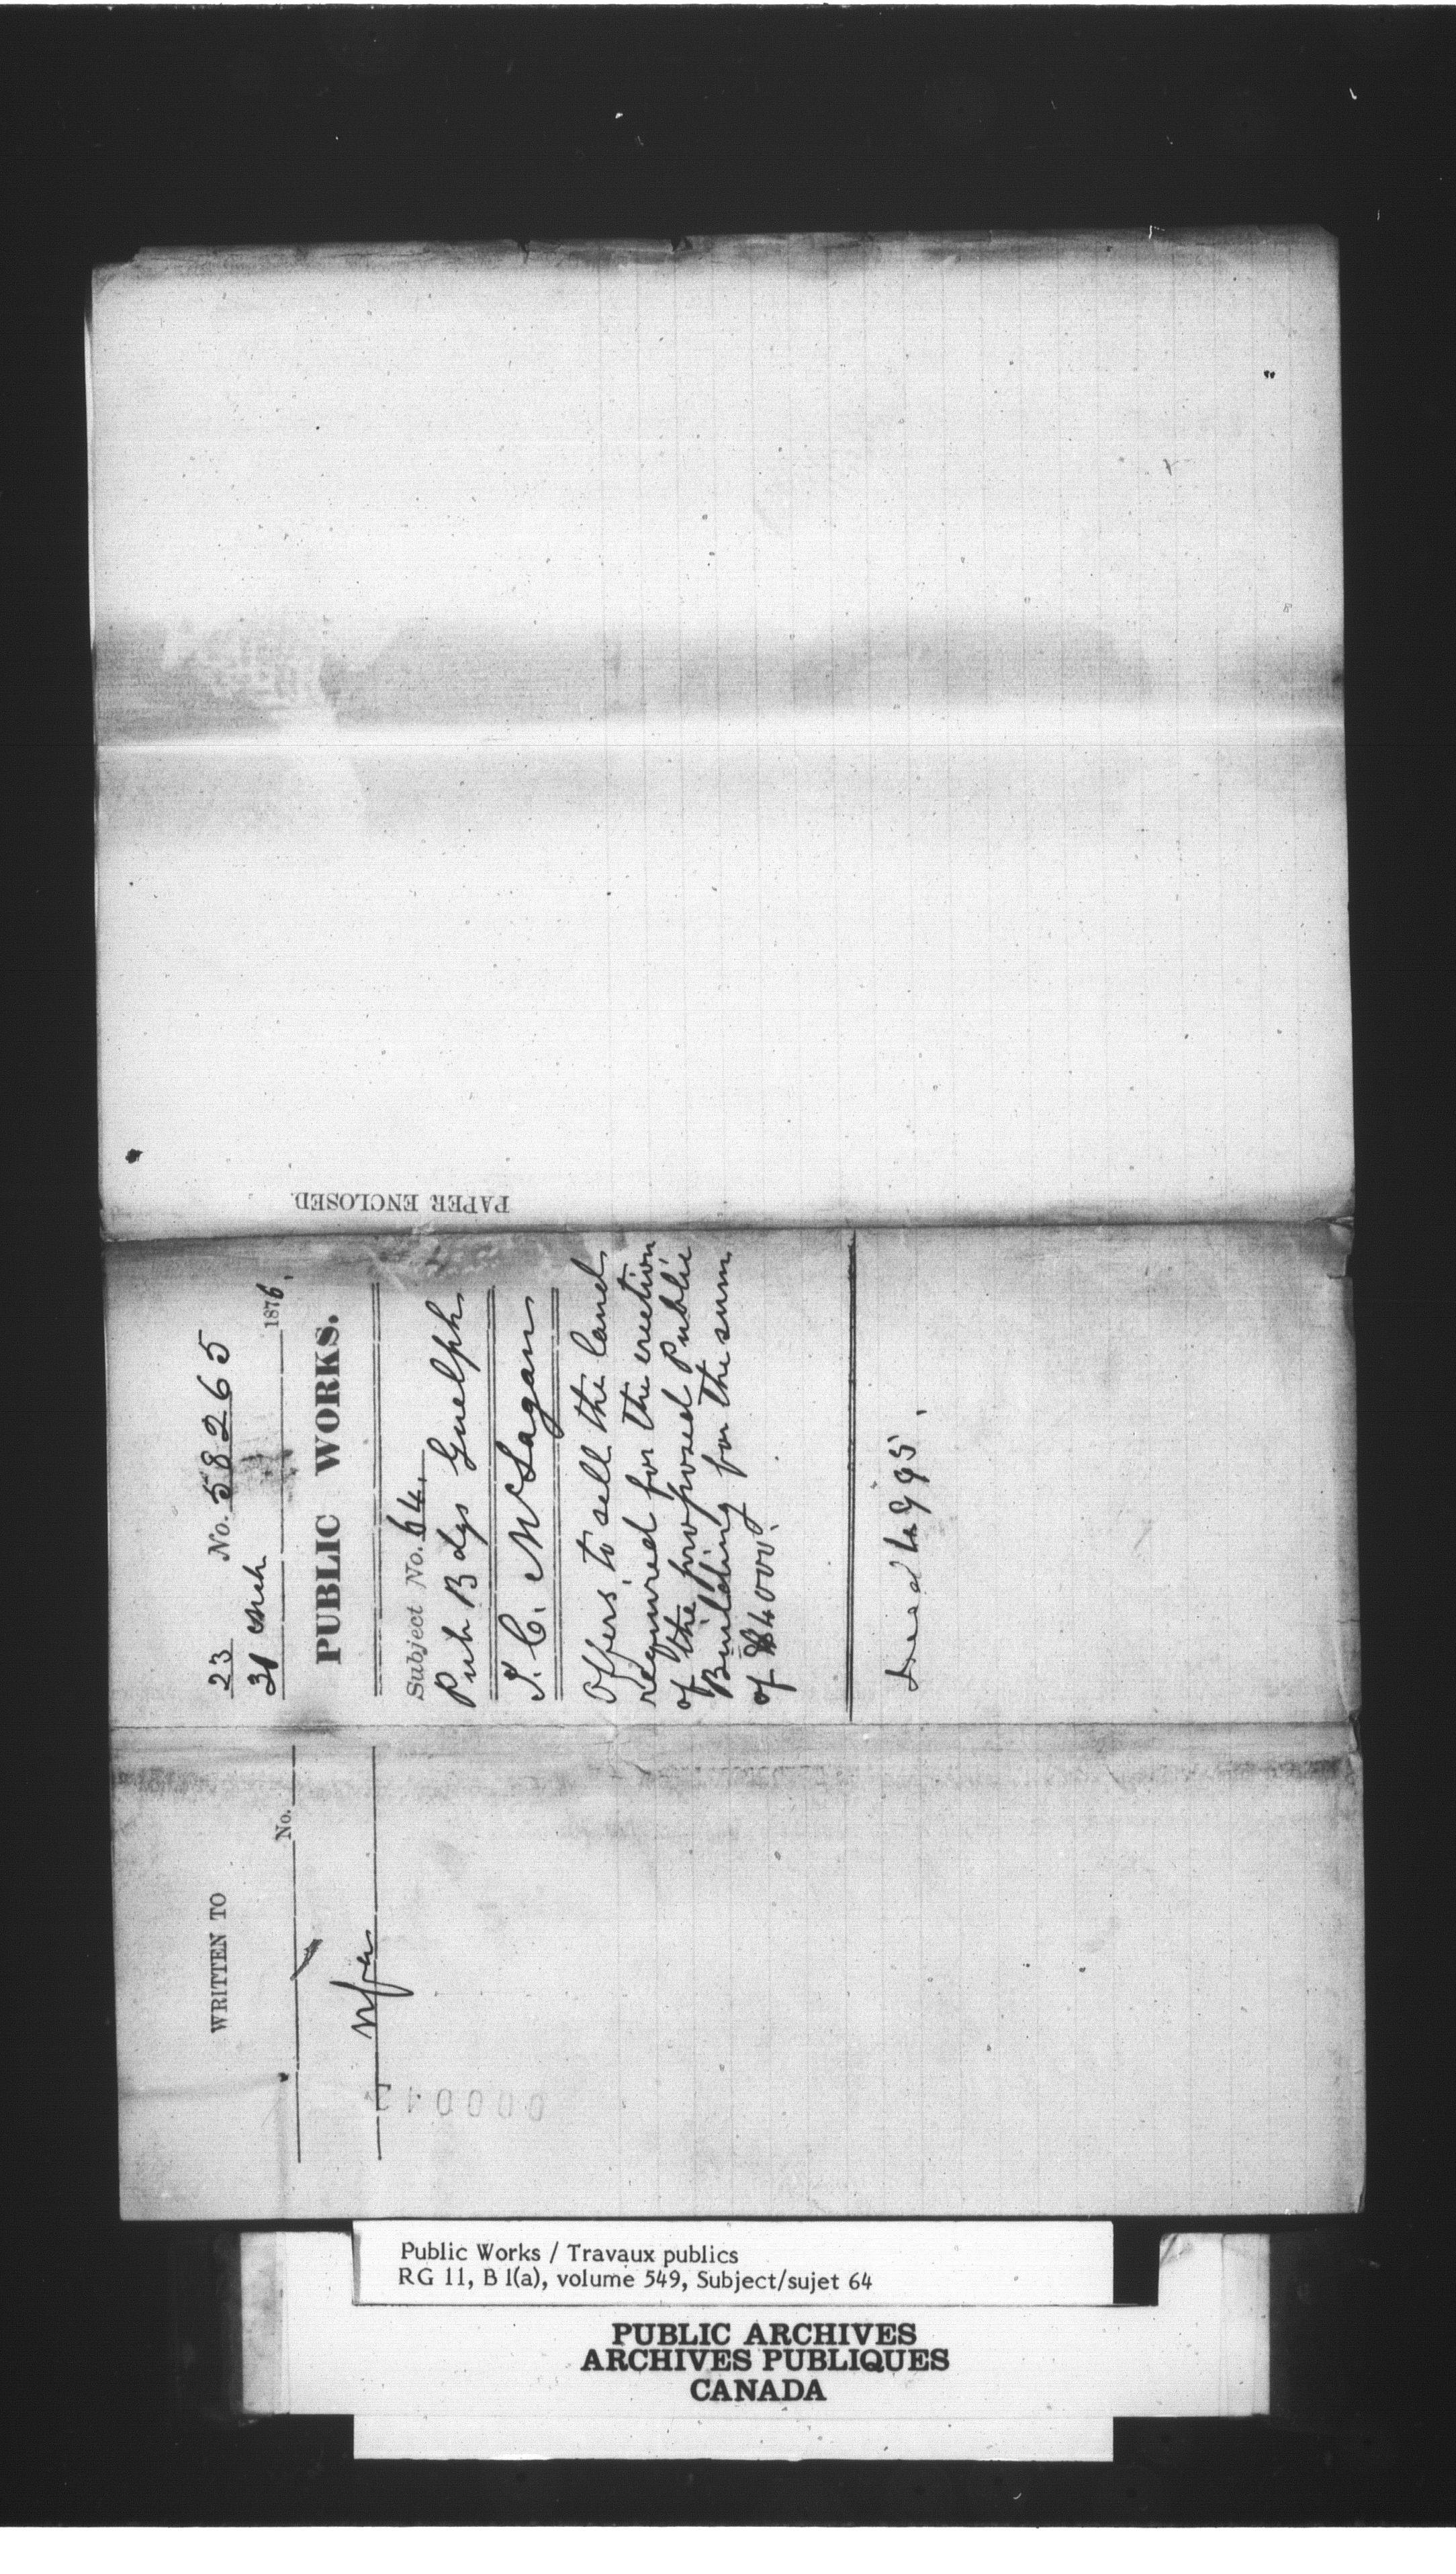 PAPER ENCLOSED.
23 No. 58265
31 Mch 1876.
PUBLIC WORKS.
Subject No. 64.
Pub Bdgs Guelph
J. C. McLagan
Offers to sell the land
required for the erection
of the proposed Public
Building for the sum
of $4000.
WRITTEN TO
No.
Public Works / Travaux publics
RG 11, B 1(a), volume 549, Subject/sujet 64
PUBLIC ARCHIVES
ARCHIVES PUBLIQUES
CANADA